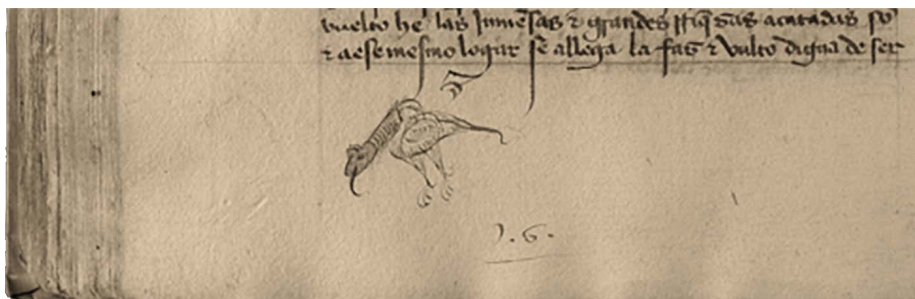 vuelto he las Inmẽsas ⁊ grandes acatadas so
⁊ a ese mesmo logar se allega la faz ⁊ vulto digna de ser
.6.